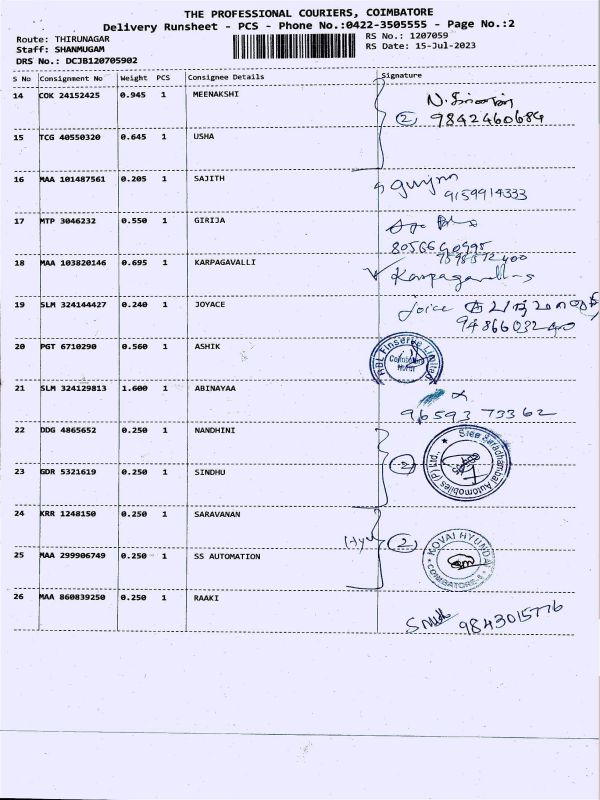 THE PROFESSIONAL COURIERS, COIMBATORE
Delivery Runsheet - PCS - Phone No.:0422-3505555 - Page No.:2
Route: THIRUNAGAR RS No.: 1207059
Staff: SHANMUGAM RS Date: 15-Jul-2023
DRS No.: DCJB120705902
S No Consignment No Weight PCS Consignee Details Signature
14 COK 24152425 0.945 1 MEENAKSHI
2 9842460684
15 TCG 40550320 0.645 1 USHA
16 MAA 101487561 0.205 1 SAJITH
9159914333
17 MTP 3046232 0.550 1 GIRIJA
18 MAA 103820146 0.695 1 KARPAGAVALLI
19 SLM 324144427 0.240 1 JOYACE Joice
20 PGT 6710290 0.560 1 ASHIK
Finserve Limited
21 SLM 324129813 1.600 1 ABINAYAA
96593 73362
22 DDG 4865652 0.250 1 NANDHINI
2 Sree Saradhambal Automobiles (P) Ltd.,
23 GDR 5321619 0.250 1 SINDHU
24 KRR 1248150 0.250 1 SARAVANAN
2 KOVAI HYUNDAI COIMBATORE
25 MAA 299906749 0.250 1 SS AUTOMATION
26 MAA 860839250 0.250 1 RAAKI
9843015776